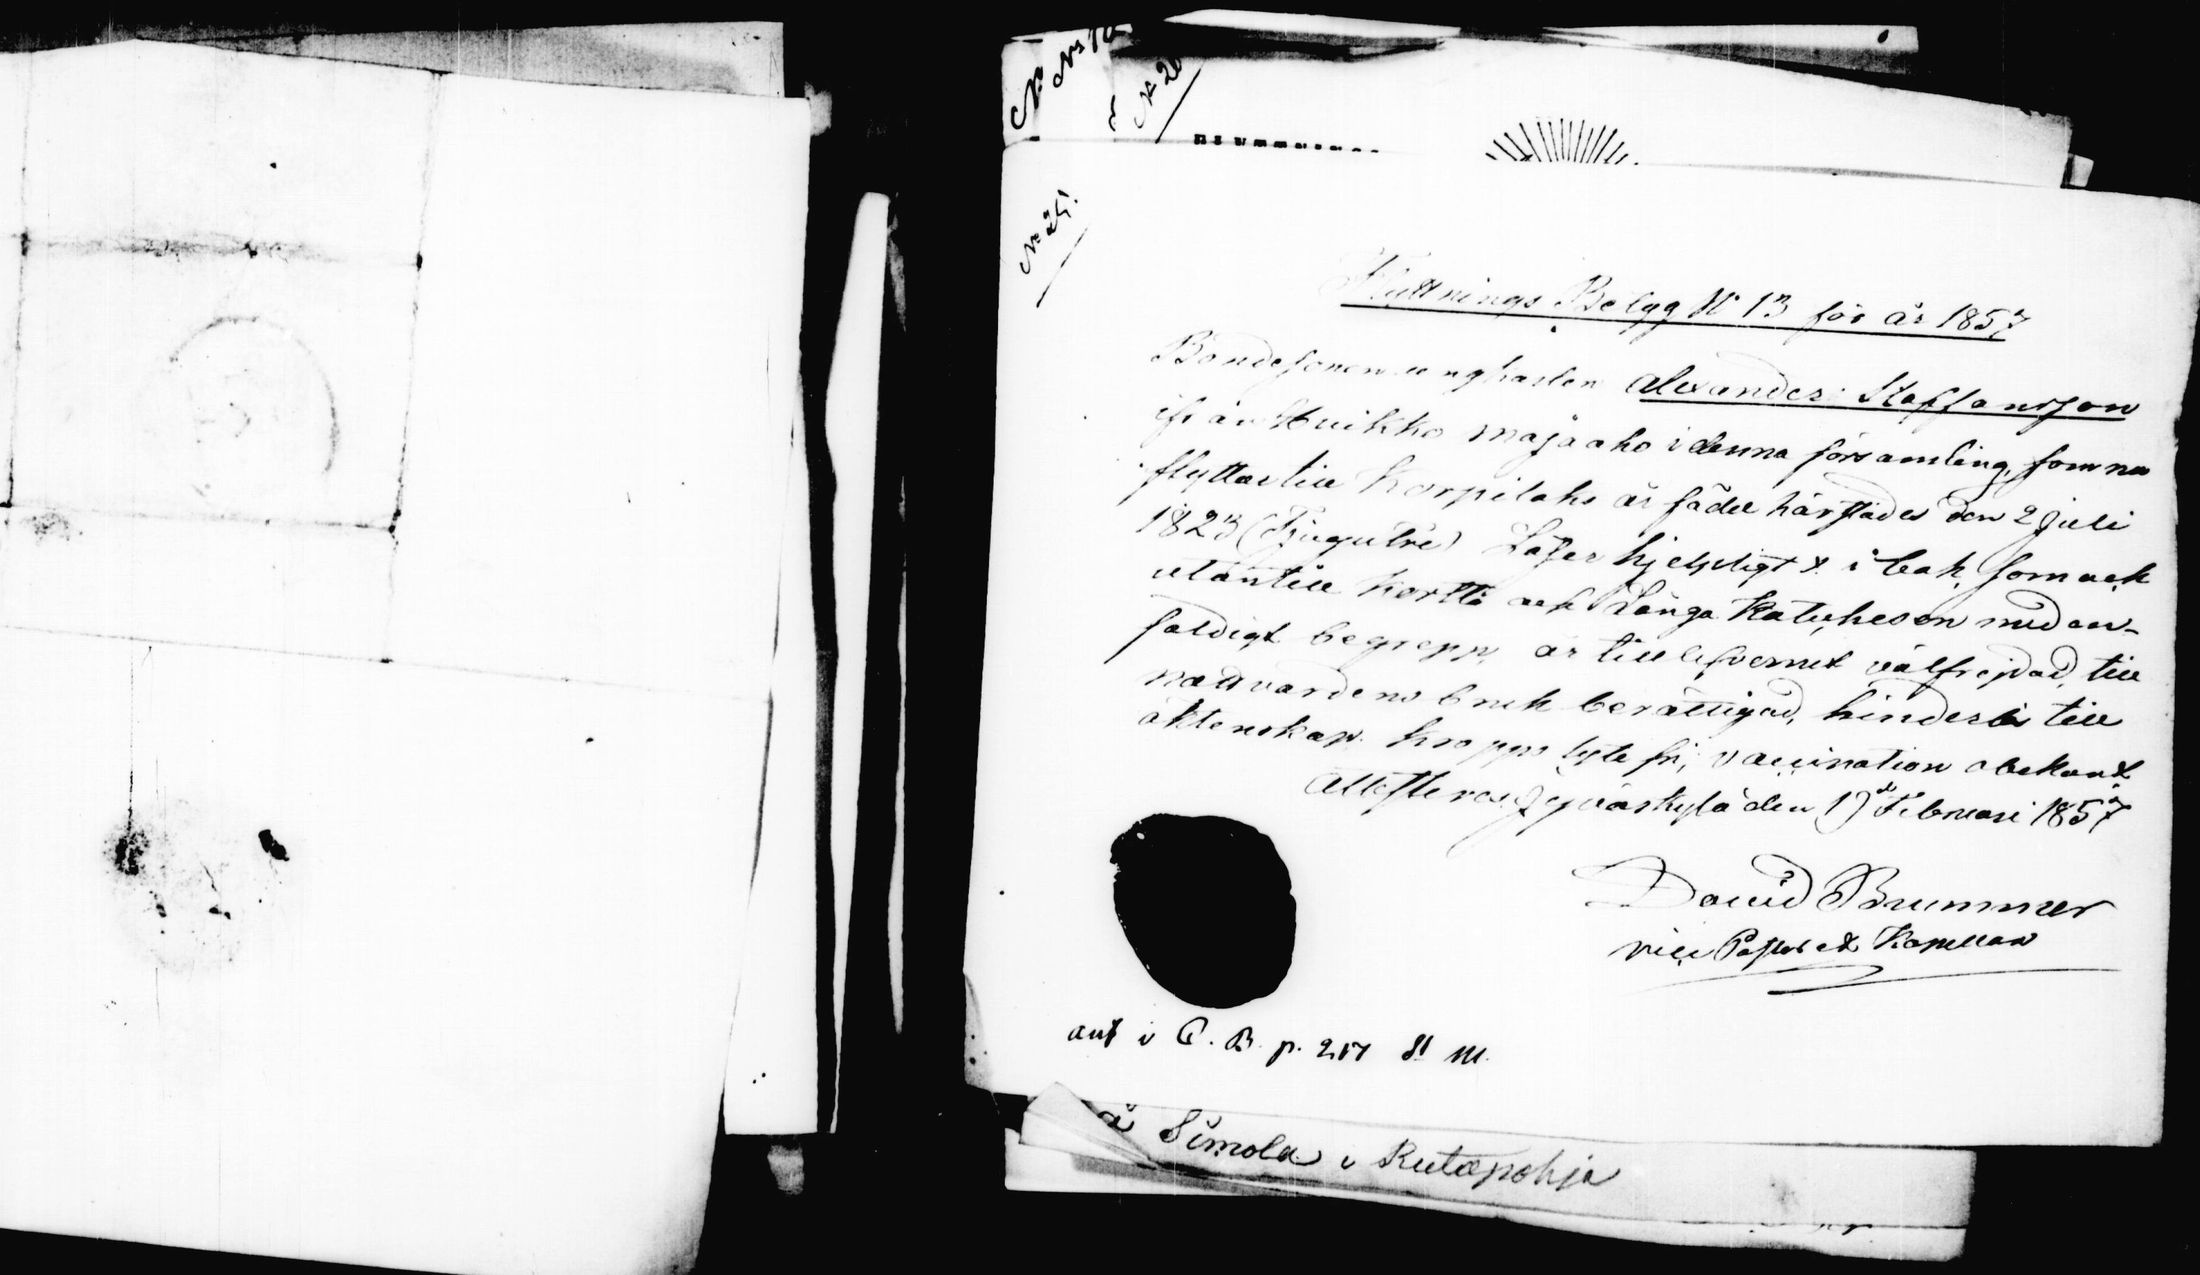 N:o 24.
Flyttnings Belgg N:o 13 för år 1857
Bondesonen ungkarlen Alexander Staffansson
ifrån Huikko majaaho i denna församling, som nu
flyttar till Korpilaks är född härstädes den 2 Juli
1823 (Tjugutre) Läser hjelpligt i bok, som ock
utantill kortta och Långa Katchesen med en-
faldigt begrepp, är till lefvernet välfrejdad, till
nattvardens bruk berättigad, hinderslös till
äktenskap. Kropps lyte fri, vaccination obekant
Attesteras Jyväskylä den 17 Februari 1857
David Brummer
vice Pastor et Kapellan
ant i C. B. p. 217 St M.
å Simola i Rutapohja